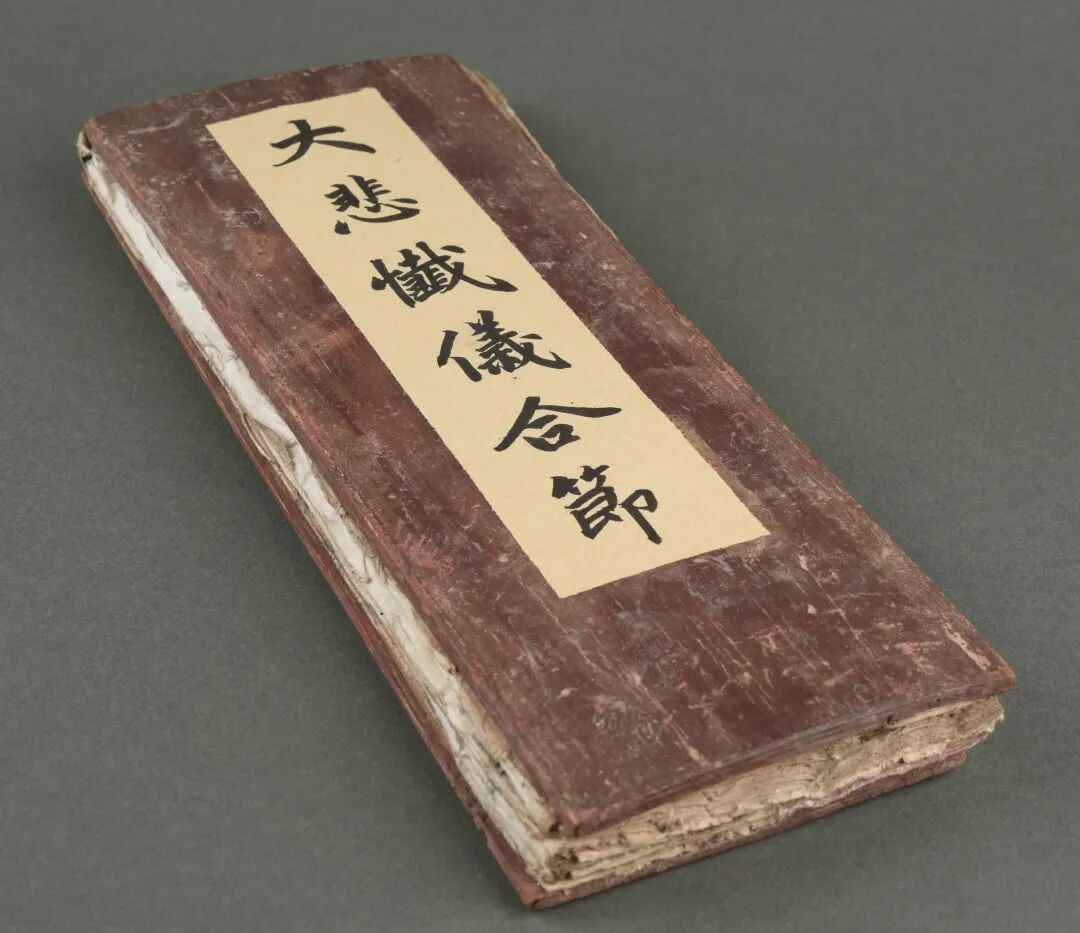 大悲懺儀合節